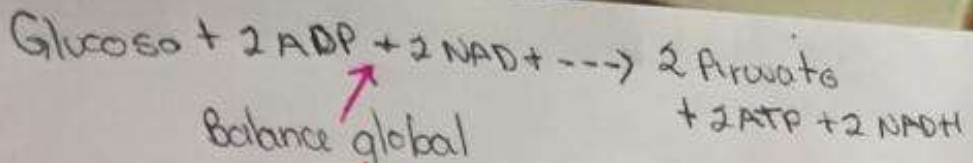 Glucosa + 2 ADP + 2 NAD+ ---> 2 Piruvato
+ 2 ATP + 2 NADH
Balance global